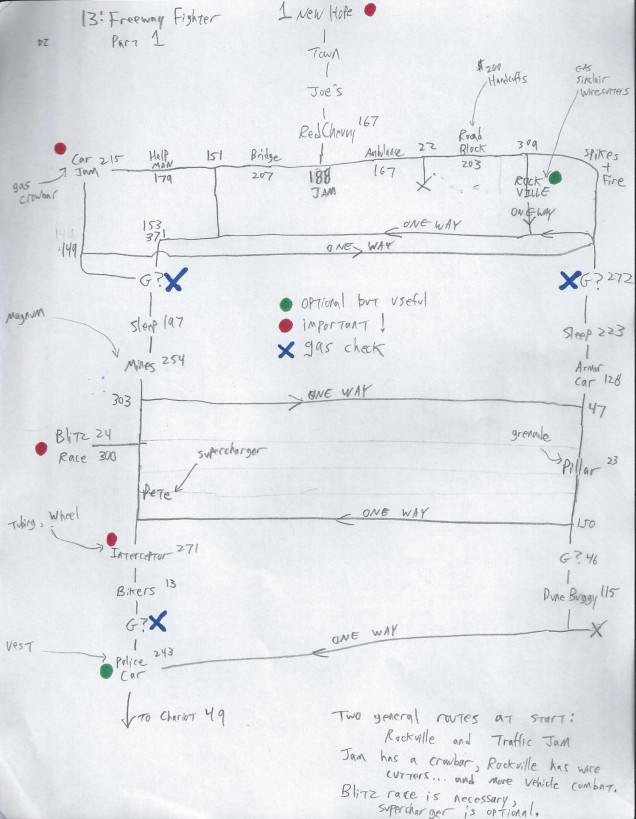 13: Freeway Fighter
Part 1
1 New Hope
Town
Joe's
Red Cherry 167
$200
Handcuffs
GAS
Sinclair
Wirecutters
Car 215
Jam
Help
Man
179
151
Bridge
207
188
JAM
Ambulance
167
22
Road
Block
203
309
Spikes
+
Fire
gas
crowbar
ROCK
VILLE
ONE WAY
153
371
ONE WAY
149
ONE WAY
G?
G? 272
Optional but useful
important!
gas check
Sleep 197
Sleep 223
Magnum
Mines 254
Armor
Car 128
303
ONE WAY
47
Blitz 24
Race 300
supercharger
grenade
Pillar 23
Pete
ONE WAY
150
Tubing, Wheel
Interceptor 271
G? 46
Bikers 13
Dune Buggy 115
G?
ONE WAY
Vest
Police 243
Car
To Chariot 49
Two general routes at start:
Rockville and Traffic Jam
Jam has a crowbar, Rockville has wire
cutters... and more vehicle combat.
Blitz race is necessary,
supercharger is optional.